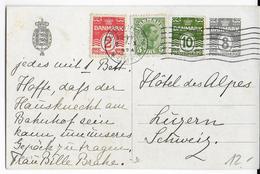 DANMARK
2
DANMARK
10
8
jedes mit 1 Bett.
Hoffe, daß der
Hausknecht am
Bahnhof sein
kann, um unseres
Gepäck zu tragen
Frau Bille Brahe.
Hôtel des Alpes
Luzern
Schweiz.
12.-